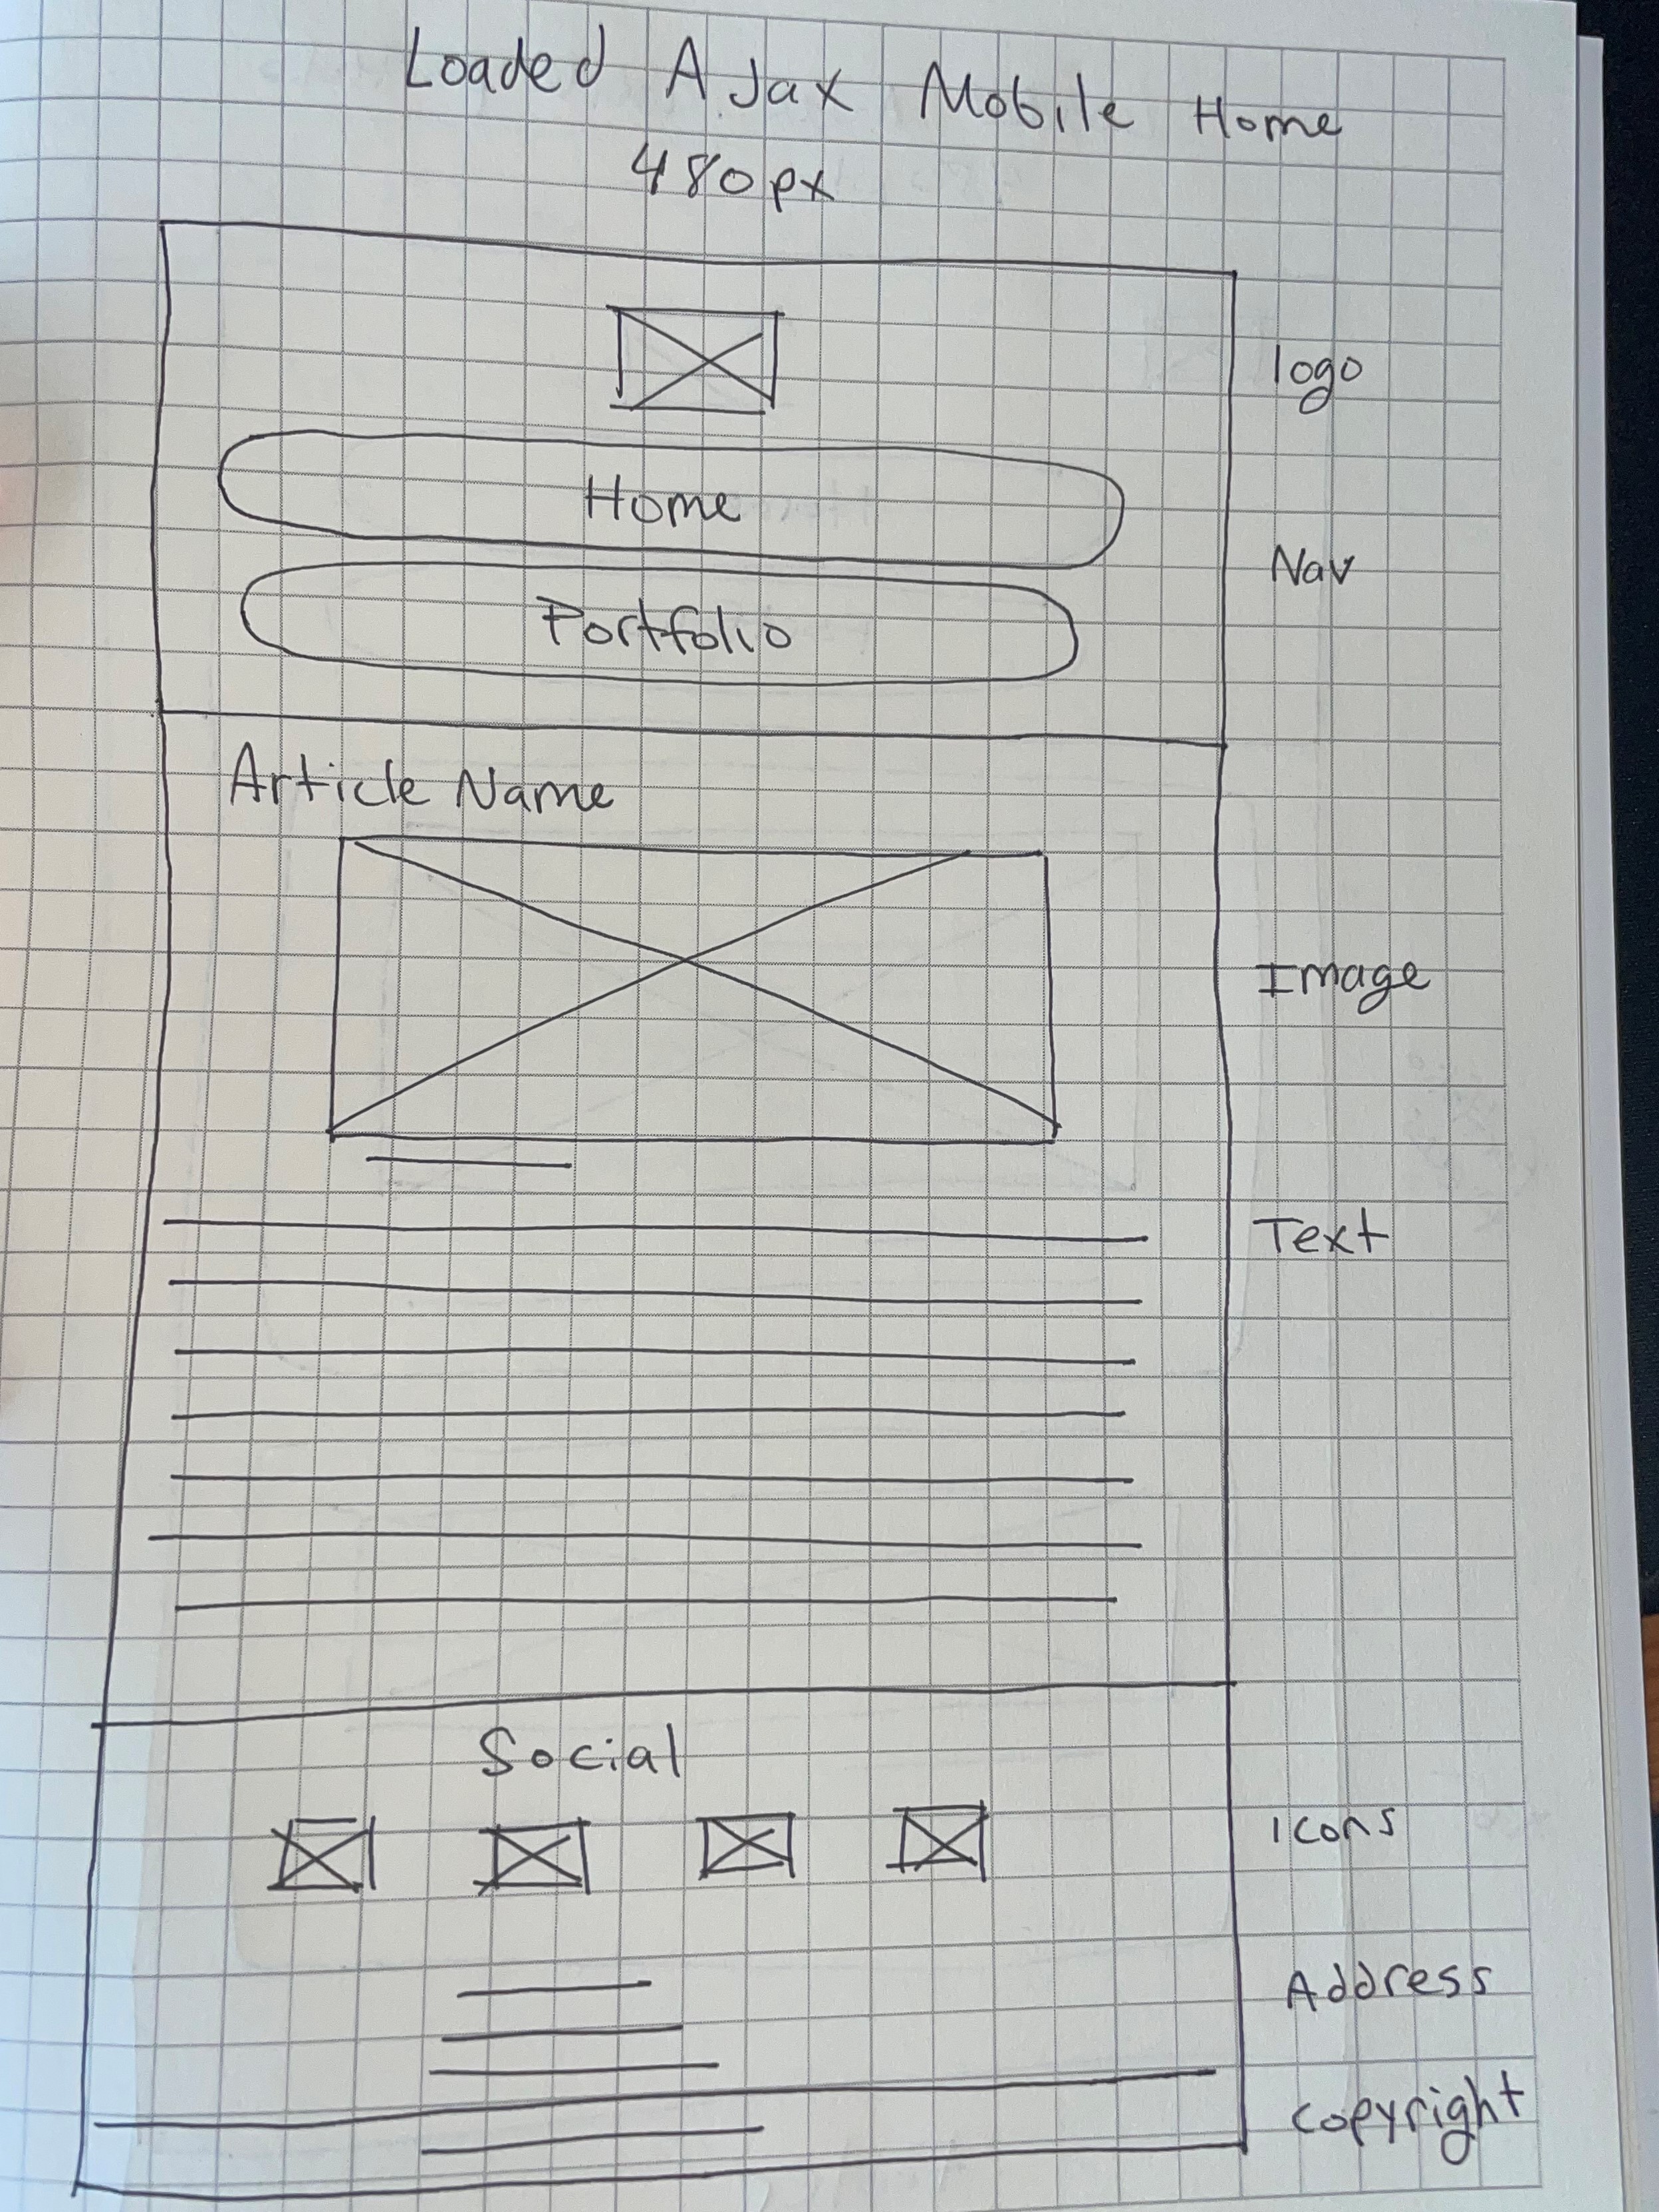 Loaded AJax Mobile Home
480px
logo
Home
Nav
Portfolio
Article Name
Image
Text
Social
Icons
Address
Copyright